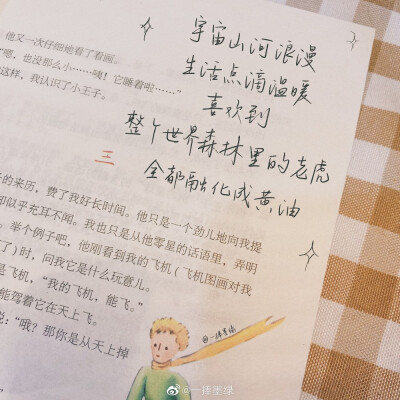 宇宙山河浪漫
生活点滴温暖
喜欢到
整个世界森林里的老虎
全都融化成黄油
他又一次仔细地看了看画。
“嗯，也没那么小……咦！它睡着啦……”
这样，我认识了小王子。
三
的来历，费了我好长时间。他只是一个劲儿地向我提
却似乎充耳不闻。我也只是从他零星的话语里，弄明
。举个例子吧，他刚看到我的飞机（飞机图画对我
了）时，问我它是什么玩意儿。
是飞机，“我的飞机，能飞。”
能驾着它在天上飞。
说：“哦？那你是从天上掉
@一捧墨绿
@一捧墨绿